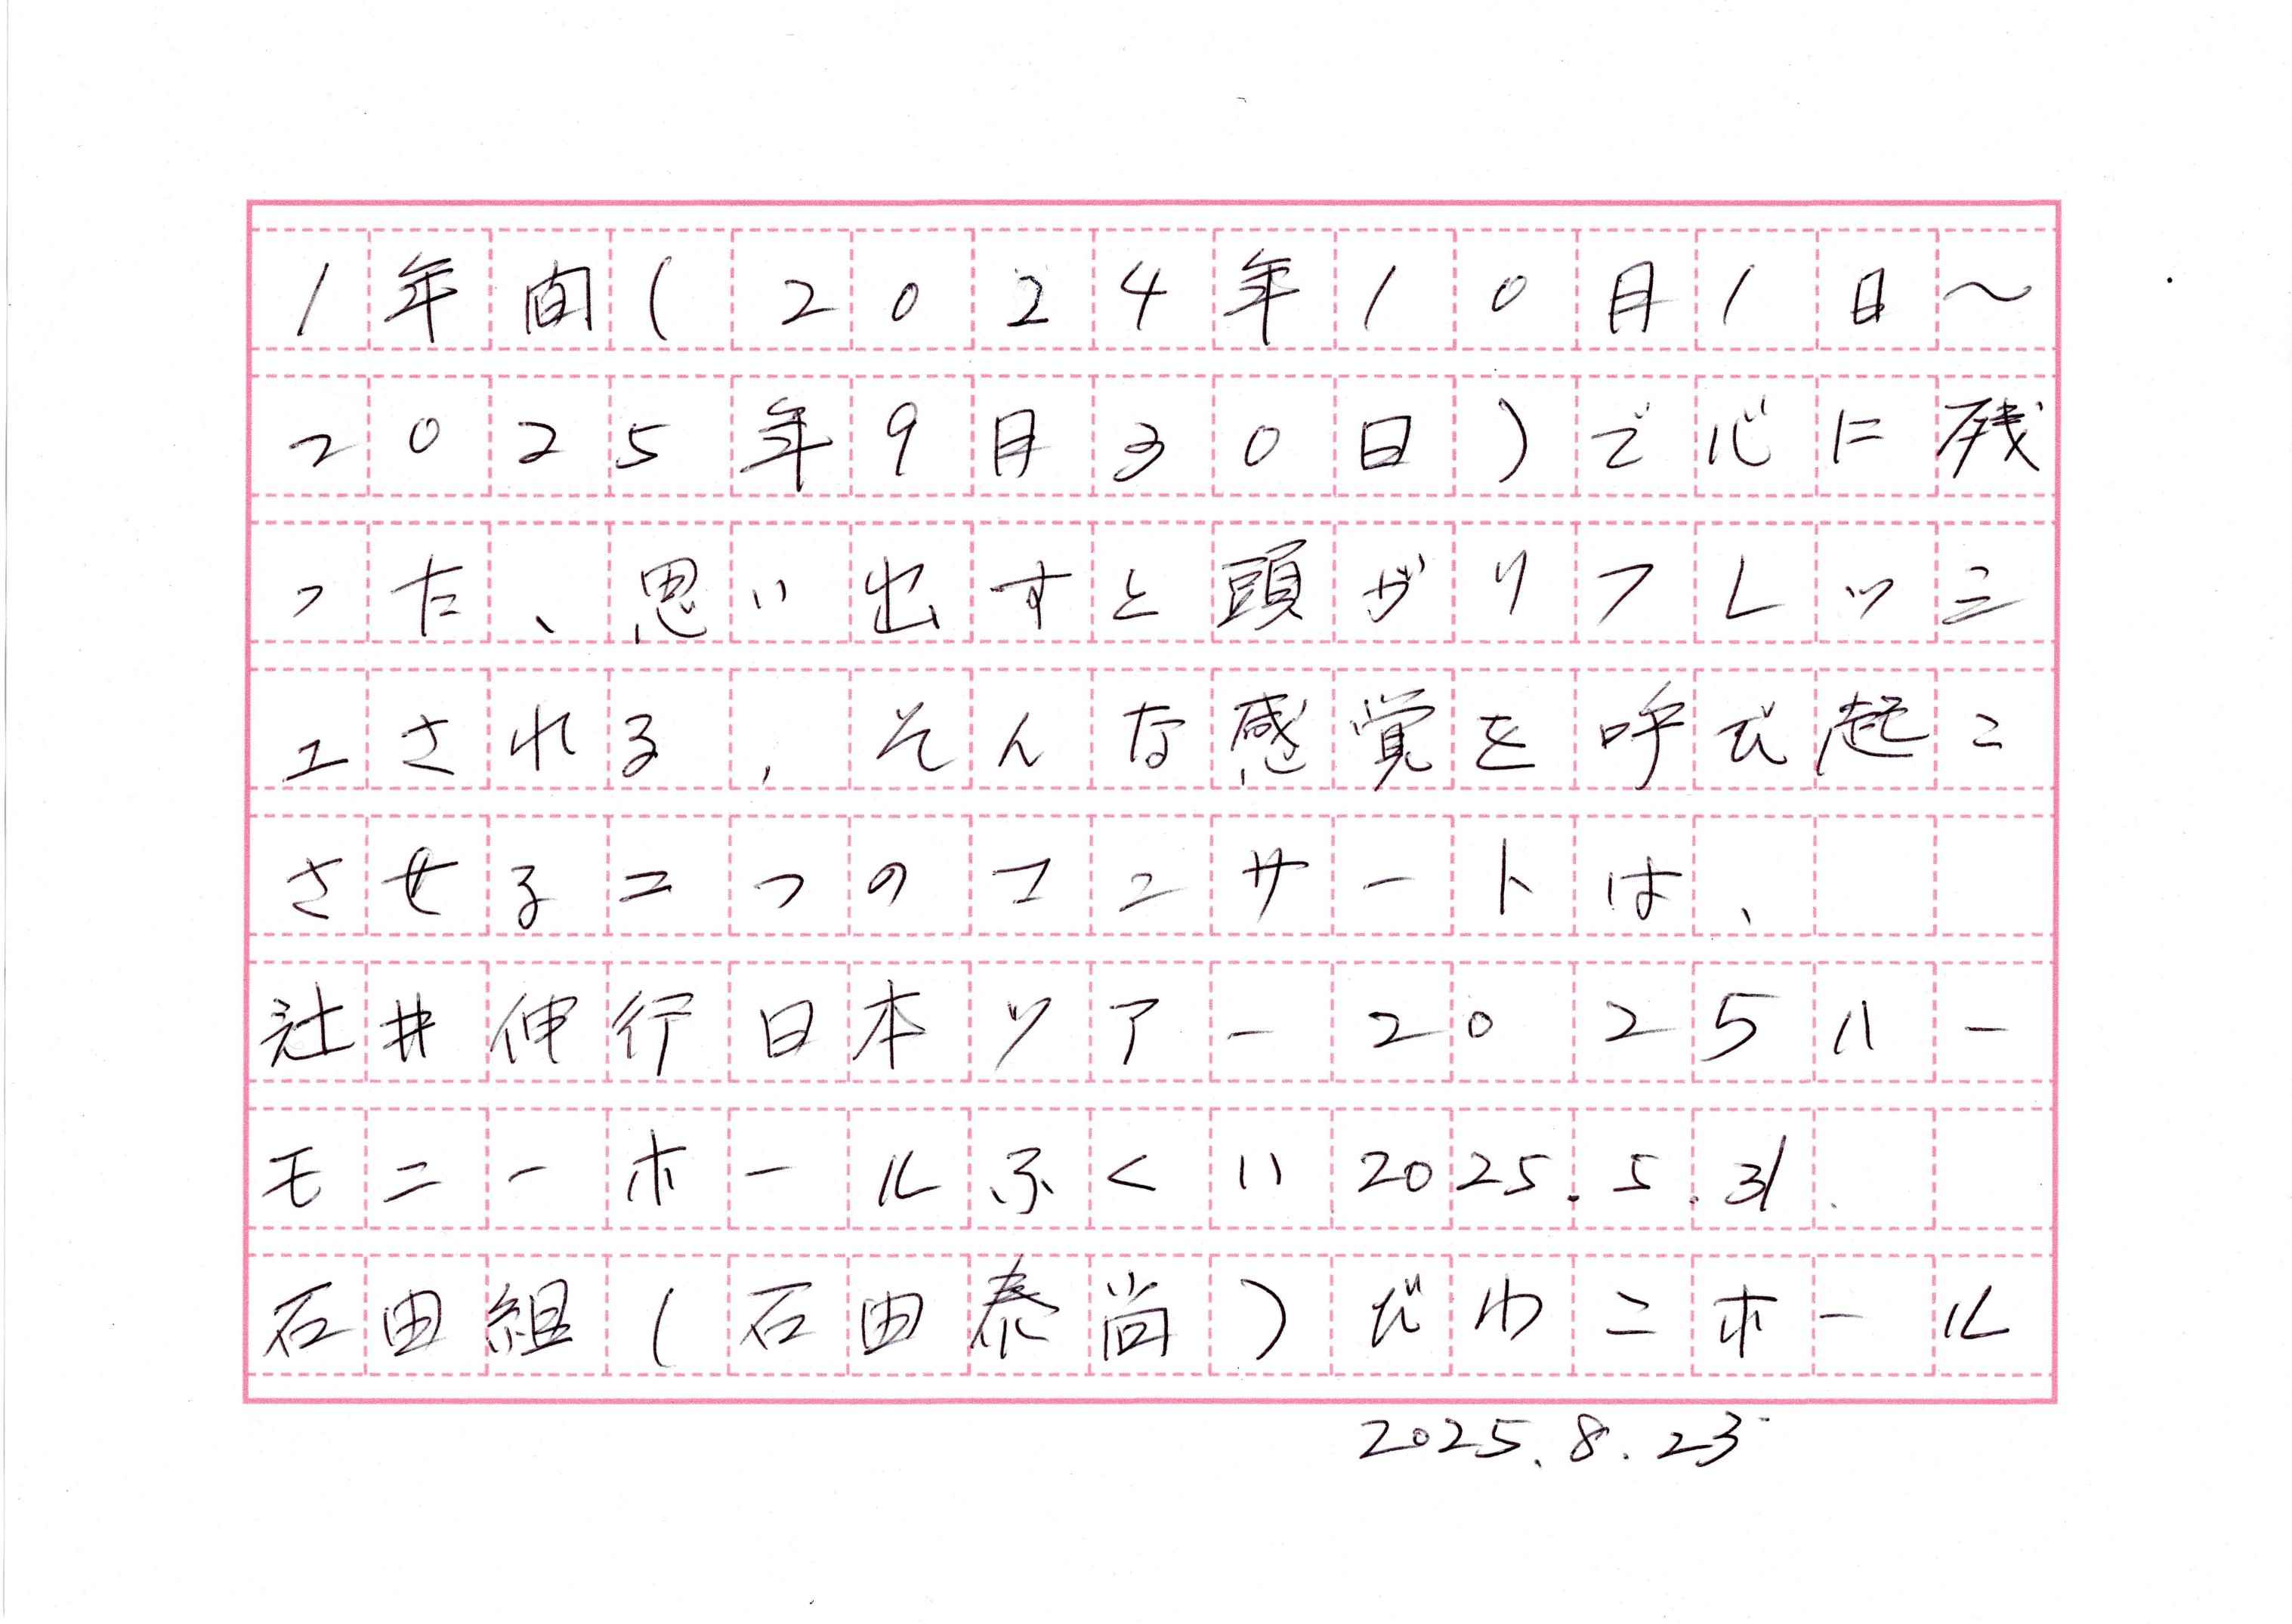 1年間(2024年10月1日〜
2025年9月30日)で心に残
った、思い出すと頭がリフレッシ
ュされる、そんな感覚を呼び起こ
させる二つのコンサートは、
辻井伸行日本ツアー2025ハー
モニーホールふくい2025.5.31.
石田組(石田泰尚)びわこホール
2025.8.23